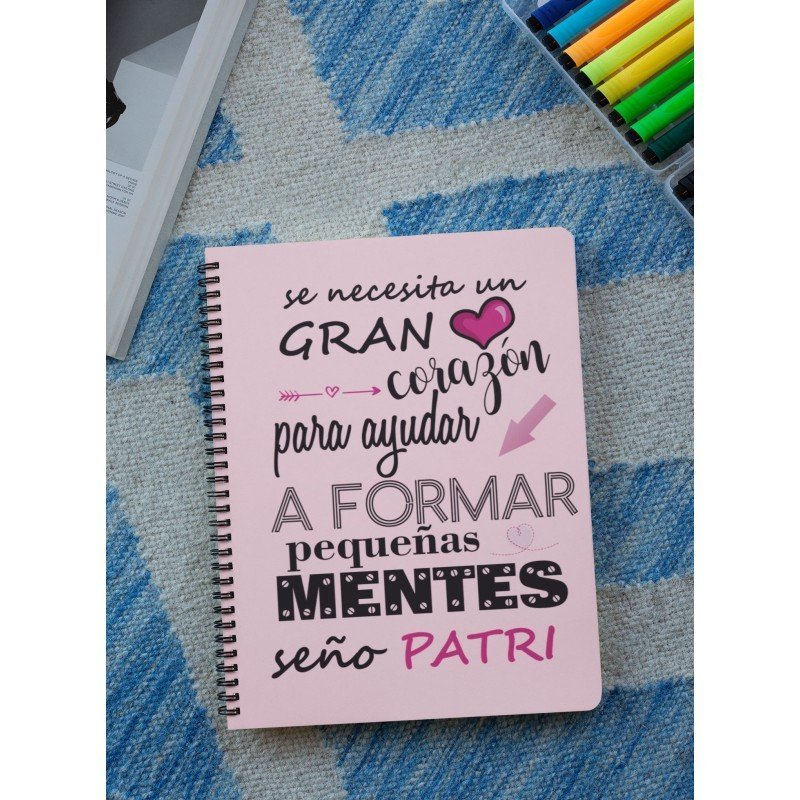 se necesita un
GRAN
corazón
para ayudar
A FORMAR
pequeñas
MENTES
seño PATRI